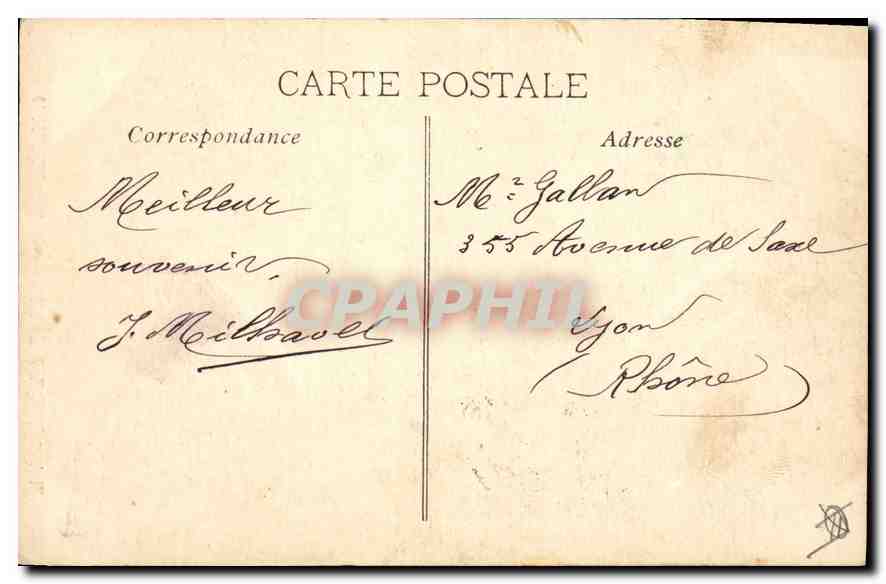 CARTE POSTALE
Correspondance
Meilleur
souvenir
J. Milhavel
Adresse
Mr Gallan
355 Avenue de Saxe
Lyon
(Rhône)
CPAPHIL